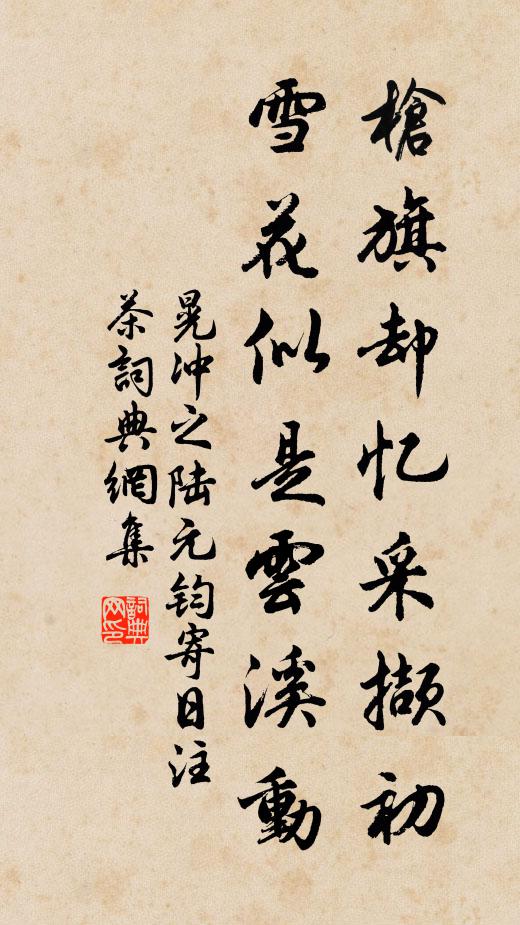 槍旗却忆采擷初
雪花似是雲溪動
晁冲之陆元钧寄日注
茶詞典網集
詞典网印